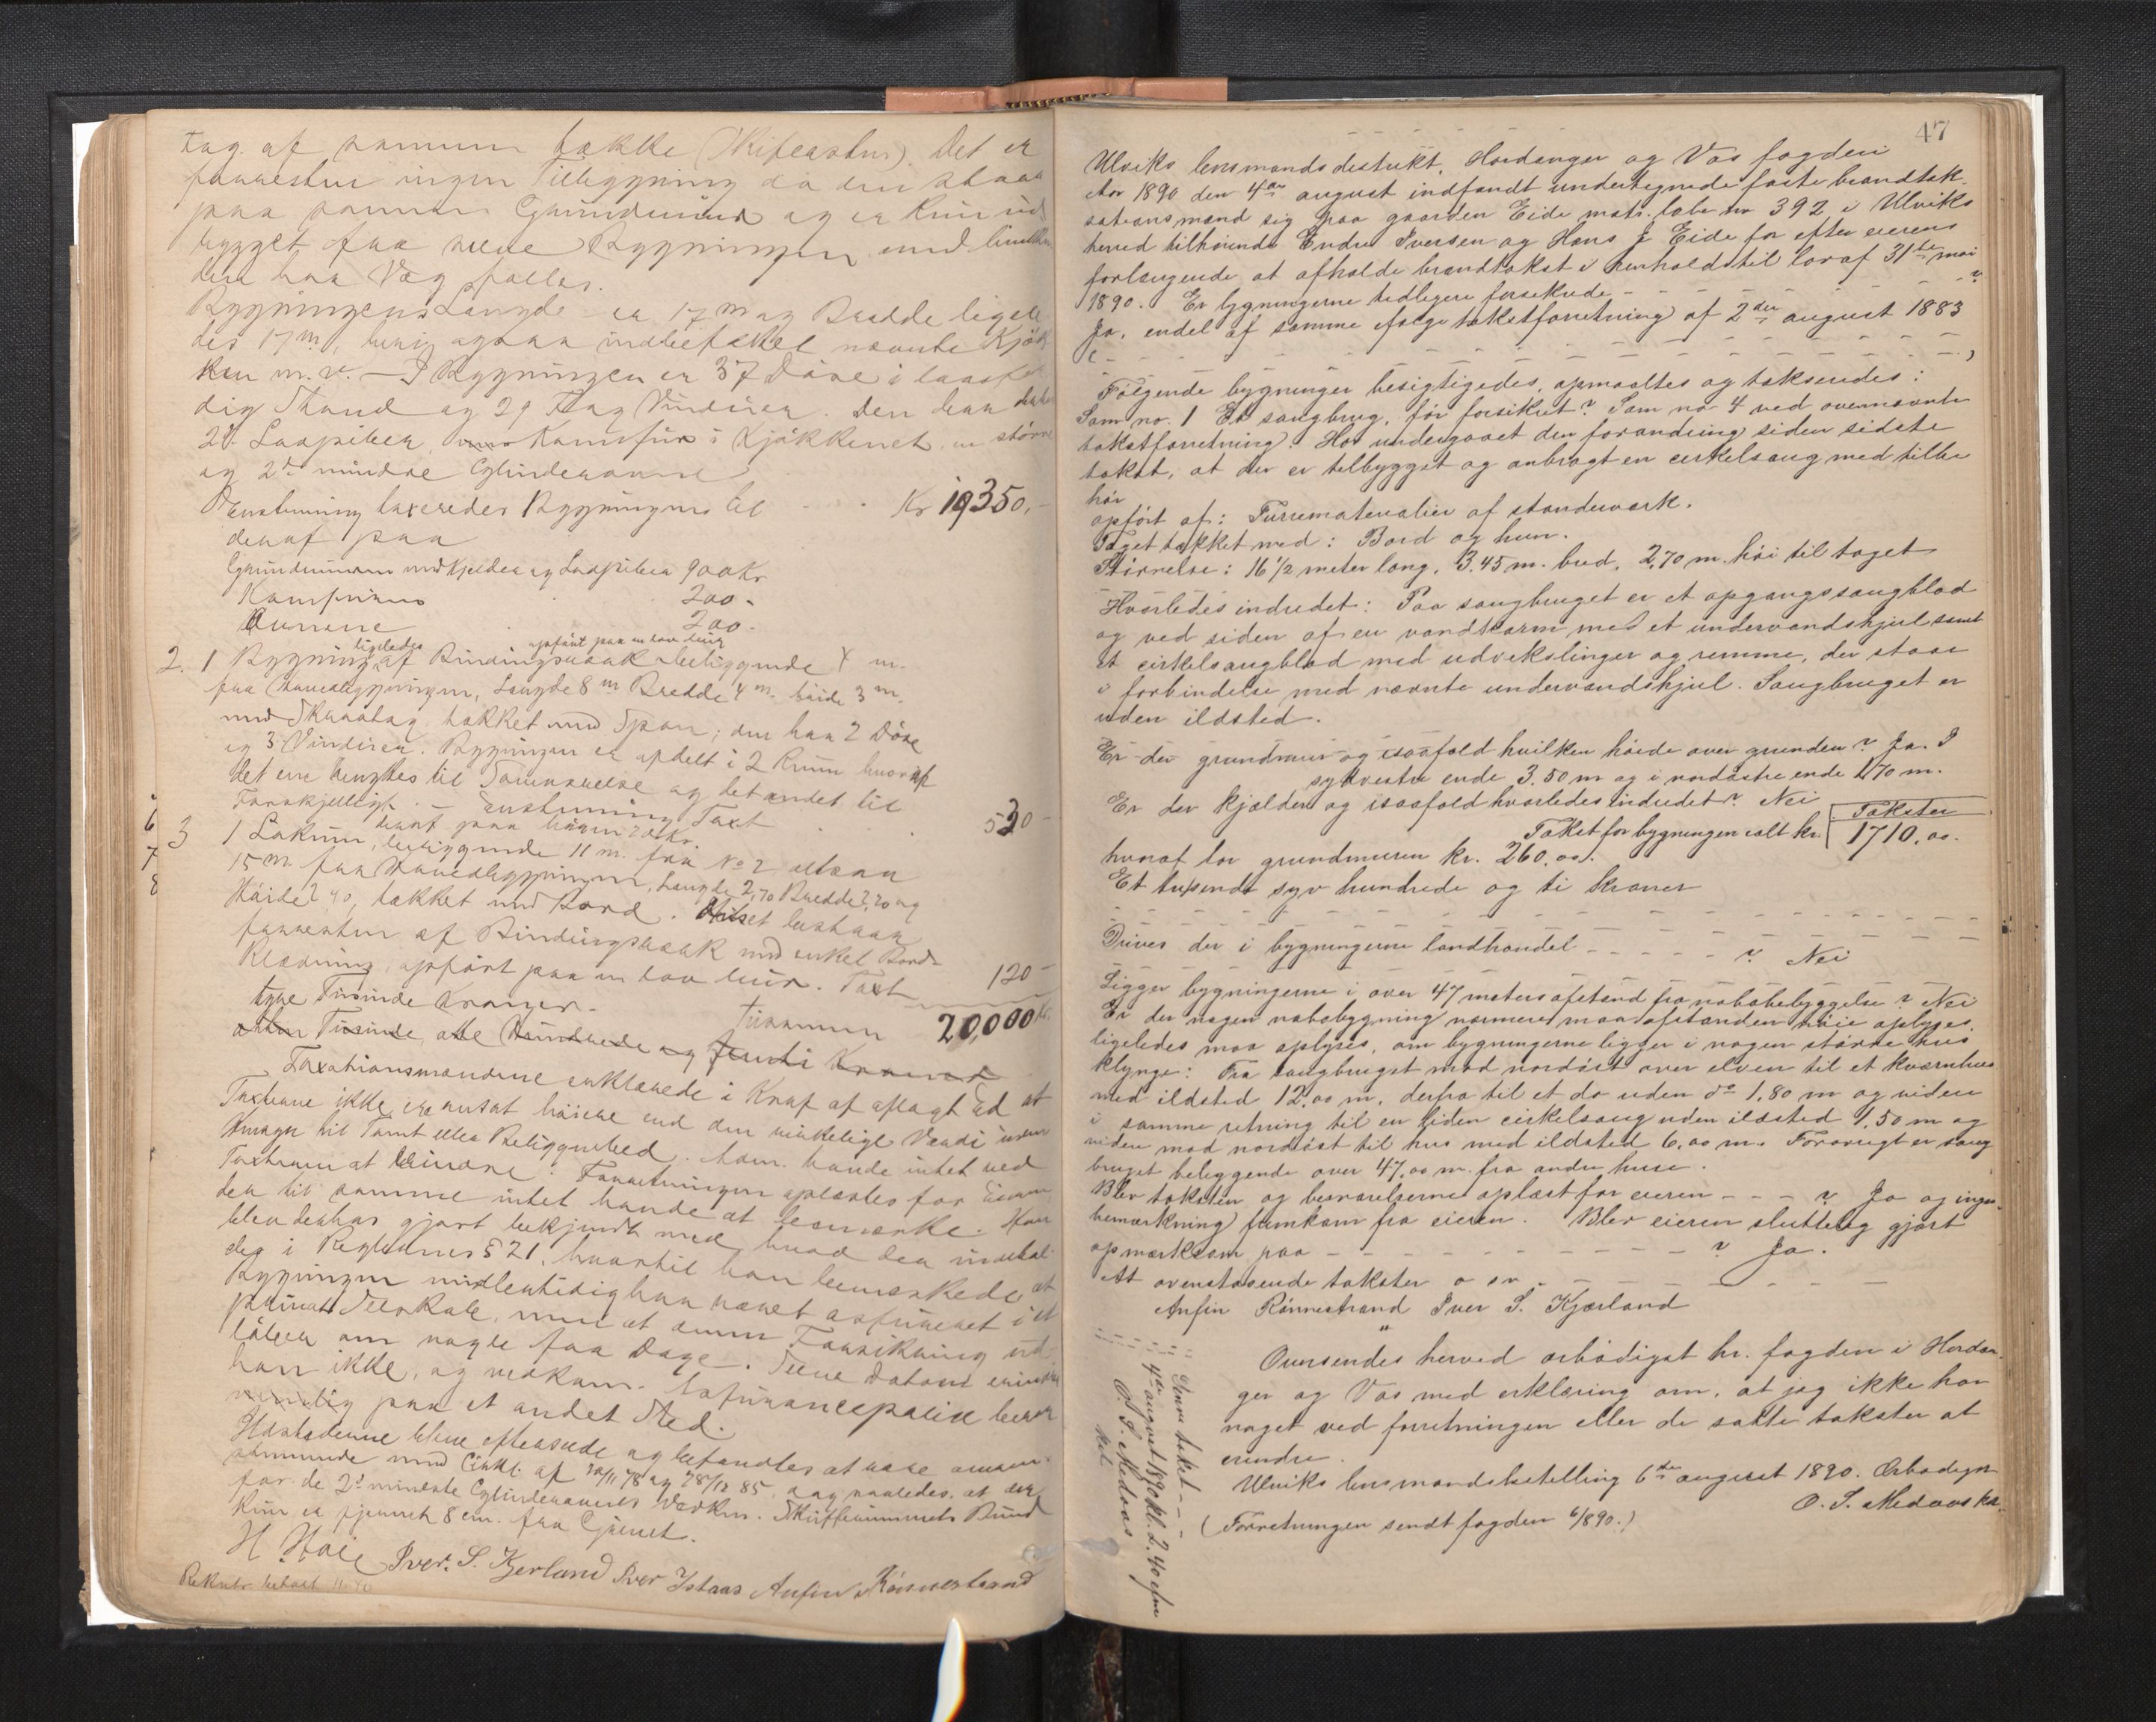 Tag af samme Tække (Skifertun). Det er
forresten ingen Tilbygning da den staar
paa samme Grundmur og er kun ud
bygget fra selve Bygningen med
den har Væg fælles.
Bygningens Længde er 17 m og Bredde ligele
des 17 m, heri ogsaa indbefattet nævnte Kjøk
ken m.v. — I Bygningen er 37 Døre i
dig Stand og 29 Fag Vinduer. Den har
2de Skorpiber, Komfur i Kjøkkenet, en større
og 2de mindre Cylinderovne
Enstemmig taxeredes Bygningen til Kr 19350,-
deraf paa
Grundmuren med Kjelder og Skorpiber 900 Kr
Komfuren 200 -
Ovnene 200 -
2. 1 Bygning ligeledes af Bindingsværk opført paa en lav Mur beliggende m.
fra Hovedbygningen, Længde 8 m Bredde 4 m høide 3 m.
med Skraatag tækket med Spon; den har 2 Døre
og 3 Vinduer. Bygningen er opdelt i 2 Rum hvoraf
det ene benyttes til og det andet til
Forskjelligt. — Enstemmig Taxt 530 -
deraf paa Muren 20 Kr.
6
7
8
3 1 Lokum, beliggende 11 m. fra No 2 og
15 m. fra Hovedbygningen, Længde 2,70 Bredde 2,20 og
Høide 2,40, tækket med Bord. Huset bestaar
forresten af Bindingsværk med enkel Bord-
klædning, opført paa en lav Mur. Taxt 120 -
tyve Tusinde Kroner. Tilsammen 20,000 Kr.
atten Tusinde, otte Hundrede og femti Kroner
Taxationsmændene erklærede i Kraf af aflagt Ed at
Taxterne ikke ere ansat høiere end den virkelige Værdi uden
Hensyn til Tomt eller Beliggenhed. Lensm. havde intet ved
Taxterne at erindre. Forretningen oplæstes for Eieren
der til samme intet havde at bemærke. Han
blev derhos gjort bekjendt med, hvad der indehol
des i Reglernes § 21, hvortil han bemærkede at
Bygningen midlertidig har været assureret i et
privat Selskab, men at denne Forsikring ud-
løber om nogle faa Dage. Selve Datoen erindrer
han ikke, og vedkom. Assurancepolice beror
nemlig paa et andet Sted.
Ildstederne bleve efterseede og befandtes at være overen-
stemmende med Cirkl. af 30/11 78 og 28/12 85, dog saaledes, at der
for de 2de mindste Cylinderovnes Vedkm. Skuffrummets Bund
kun er fjernet 8 cm. fra Gulvet.
H. Hole Iver. S. Kjerland Iver Ystaas Anfin Rønnestrand
Rekvbr. betalt

47
Ulviks lensmandsdistrikt, Hardanger og Vos fogderi
Aar 1890 den 4de august indfandt undertegnede faste brandtak-
sationsmænd sig paa gaarden Eide matr. løbe nr 392 i Ulviks
herred tilhørende Endre Iversen og Hans J Eide for efter eierens
forlangende at afholde brandtakst i henhold til lov af 31te mai
1890. Er bygningerne tidligere forsikrede — — — ?
Ja, endel af samme ifølge takstforretning af 2den august 1883
(— — — — — — — — — — — — —)
Følgende bygninger besigtigedes, opmaaltes og takseredes:
Som no. 1 Et saugbrug, før forsikret? Som no 4 ved ovennævnte
takstforretning. Har undergaaet den forandring siden sidste
takst, at der er tilbygget og anbragt en cirkelsaug med tilbe
hør
opført af: Furrematerialier af standerværk.
Taget tækket med: Bord og hun.
Størrelse: 16 1/2 meter lang, 3.45 m. bred, 2,70 m. høi til taget
Hvorledes indredet: Paa saugbruget er et opgangssaugblad
og ved siden af en vandkarm med et undervandshjul samt
et cirkelsaugblad med udvekslinger og remme, der staar
i forbindelse med nævnte undervandshjul. Saugbruget er
uden ildsted.
Er der grundmur og isaafald hvilken høide over grunden? Ja. I
sydvestre ende 3.50 m og i nordøstre ende 1,70 m.
Er der kjælder og isaafald hvorledes indredet? Nei
Takster
Takst for bygningen ialt kr. 1710,00.
hvoraf for grundmuren kr. 260,00.
Et tusende syv hundrede og ti kroner
— — — — — — — — — — — — —
Drives der i bygningerne landhandel — — — — — ? Nei
Ligger bygningerne i over 47 meters afstand fra nabobebyggelse? Nei
Er der nogen nabobygning nærmere maa afstanden høie oplyses,
ligeledes maa oplyses, om bygningerne ligger i nogen større hus
klynge: Fra saugbruget mod nordøst over elven til et kværnhus
med ildsted 12,00 m, derfra til et do uden do 1,80 m og videre
i samme retning til en liden cirkelsaug uden ildsted 1,50 m og
videre mod nordøst til hus med ildsted 6,00 m. Forøvrigt er saug
bruget beliggende over 47,00 m. fra andre huse.
Blev taksten og besvarelserne oplæst for eieren — — — ? Ja og ingen
bemærkning fremkom fra eieren. Blev eieren sluttelig gjort
opmærksom paa — — — — — — — — — ? Ja.
At ovenstaaende takster o s v. — — — — — —
Anfin Rønnestrand Iver S. Kjærland
"
Oversendes herved ærbødigst hr. fogden i Hardan-
ger og Vos med erklæring om, at jeg ikke har
noget ved forretningen eller de satte takster at
erindre.
Ulviks lensmandsbestilling 6te august 1890. Ærbødigst
O. S. Medaas kst.
(Forretningen sendt fogden 6/8 90.)
Denne takst — —
4de august 1890 kl. 2.40 efm
O. S. Medaas
kst